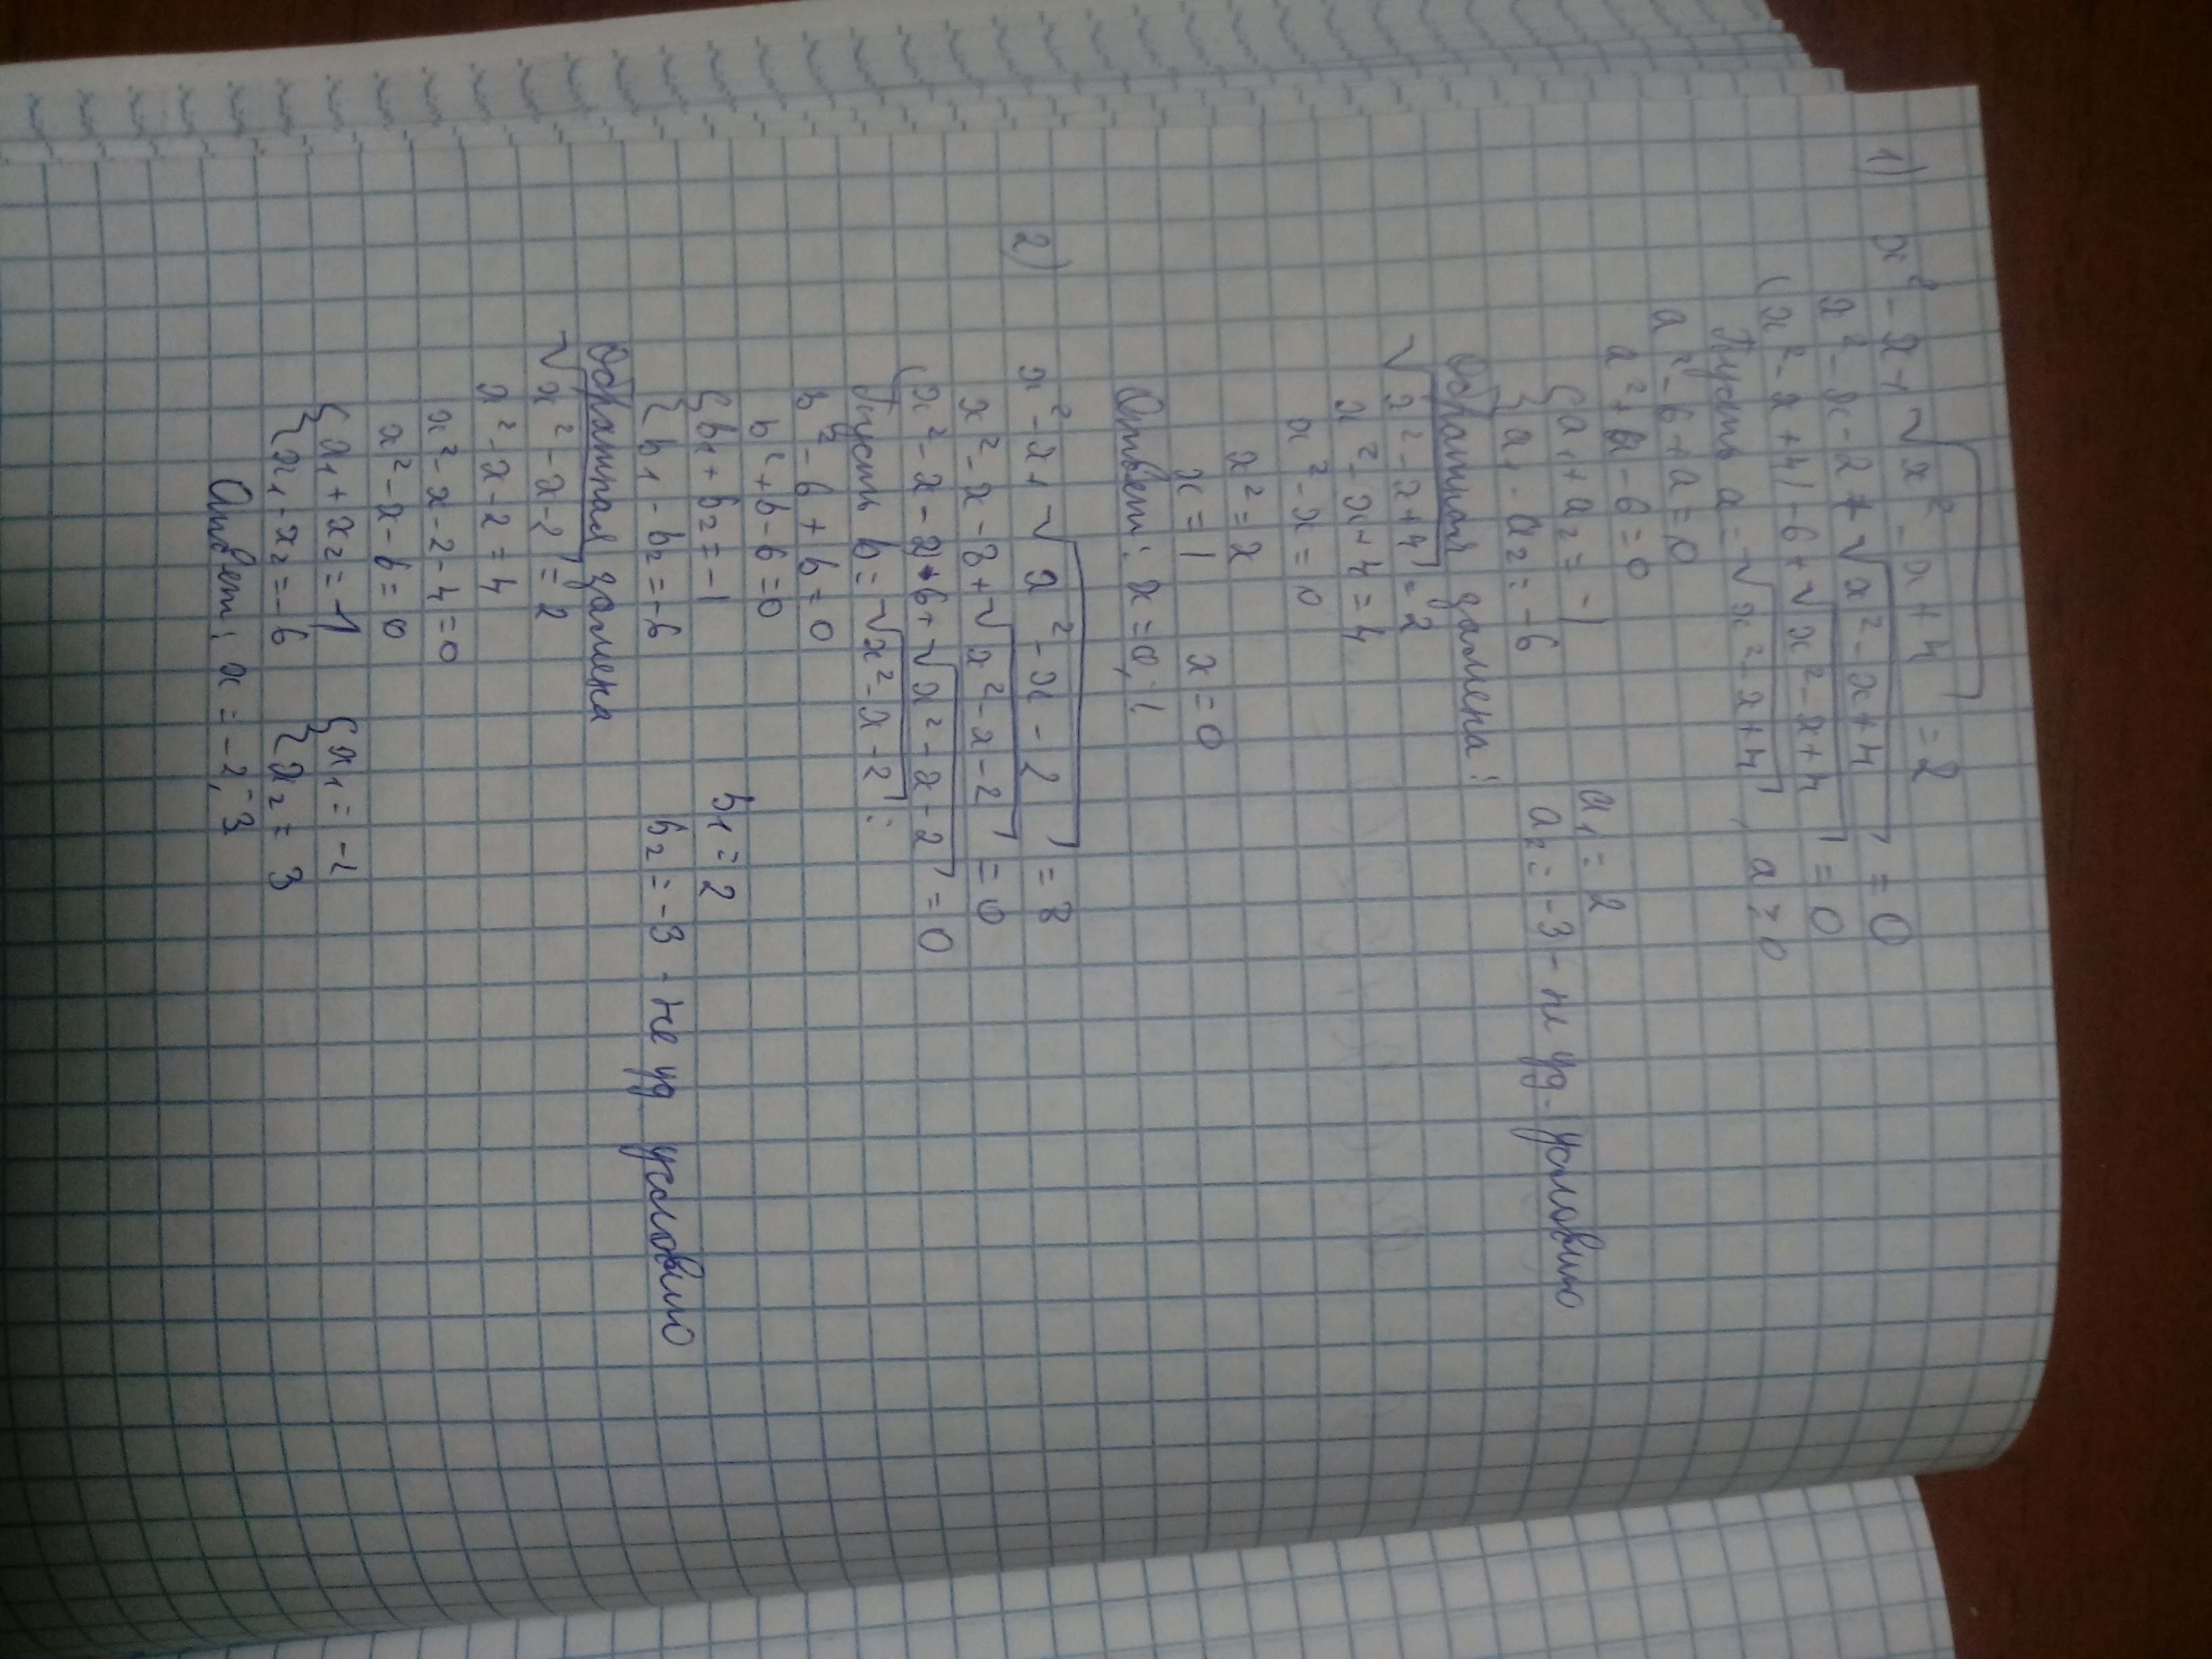 1) x² - x + √x² - x + 4 = 2
x² - x - 2 + √x² - x + 4 = 0
(x² - x + 4) - 6 + √x² - x + 4 = 0
Пусть a = √x² - x + 4, a ≥ 0
a² - 6 + a = 0
a² + a - 6 = 0
{a₁ + a₂ = -1 a₁ = 2
{a₁ · a₂ = -6 a₂ = -3 - не уд. условию
Обратная замена:
√x² - x + 4 = 2
x² - x + 4 = 4
x² - x = 0
x² = x
x = 1 x = 0
Ответ: x = 0; 1
2) x² - x + √x² - x - 2 = 8
x² - x - 8 + √x² - x - 2 = 0
(x² - x - 2 - 6 + √x² - x - 2 = 0
Пусть b = √x² - x - 2:
b² - 6 + b = 0
b² + b - 6 = 0
{b₁ + b₂ = -1 b₁ = 2
{b₁ · b₂ = -6 b₂ = -3 - не уд условию
Обратная замена
√x² - x - 2 = 2
x² - x - 2 = 4
x² - x - 2 - 4 = 0
x² - x - 6 = 0
{x₁ + x₂ = 1 {x₁ = -2
{x₁ · x₂ = -6 {x₂ = 3
Ответ: x = -2; 3